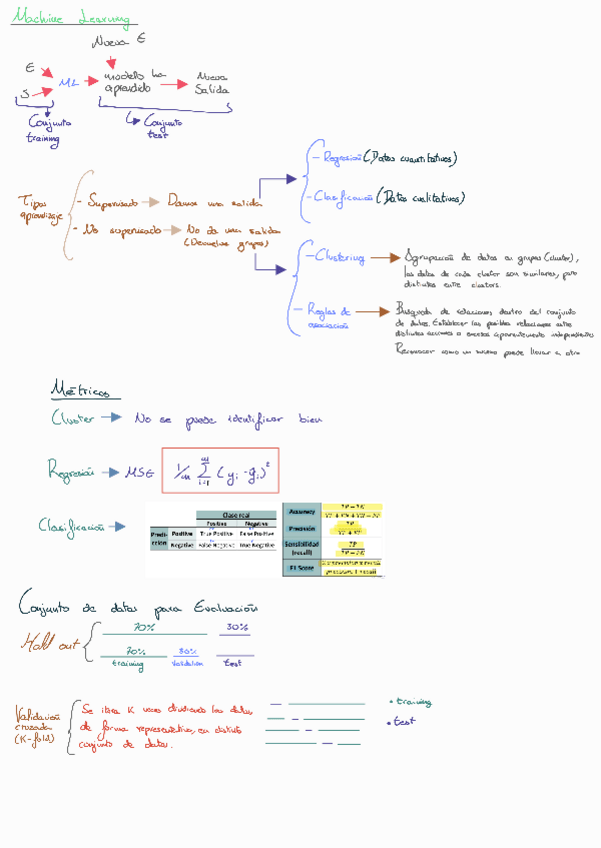 Machine Learning
Nueva E
E
S
ML
modelo ha
aprendido
Nueva
Salida
Conjunto
training
Conjunto
test
Tipos
aprendizaje
- Supervisado
Damos una salida
- No supervisado
No da una salida
(Devuelve grupos)
- Regresión (Datos cuantitativos)
- Clasificación (Datos cualitativos)
- Clustering
Agrupación de datos en grupos (cluster),
los datos de cada cluster son similares, pero
distintos entre clusters.
- Reglas de
asociación
Búsqueda de relaciones dentro del conjunto
de datos. Establecer las posibles relaciones entre
distintas acciones o sucesos aparentemente independientes
Reconocer como un mismo puede llevar a otro
Métricas
Cluster
No se puede identificar bien
Regresión
MSE
1/m Σ (yi - ŷi)²
m
i=1
Clasificación
Clase real
Positive Negative
Predi-
ccion
Positive True Positive False Positive
Negative False Negative True Negative
Accuracy
Precisión
TP
Sensibilidad
(recall)
TP
F1 Score
Conjunto de datos para Evaluación
Hold out
70% 30%
70% 30%
training validation test
Validación
cruzada
(K-fold)
Se itera K veces dividiendo los datos
de forma representativa, en distinto
conjunto de datos.
• training
• test